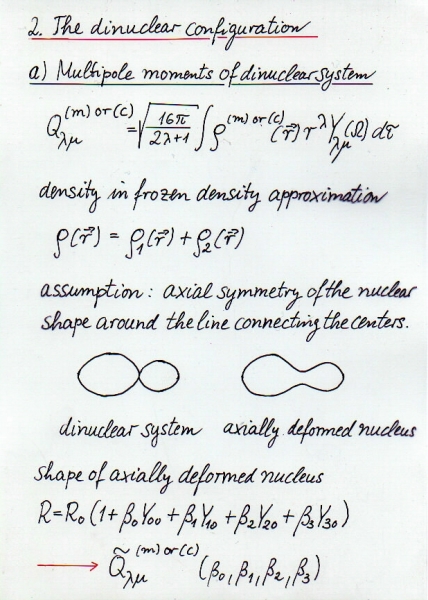 2. The dinuclear configuration
a) Multipole moments of dinuclear system
Q_{λμ}^{(m) or (c)} = √(16π/(2λ+1)) ∫ ρ^{(m) or (c)} (r⃗) r^λ Y_{λμ}(Ω) dτ
density in frozen density approximation
ρ(r⃗) = ρ₁(r⃗) + ρ₂(r⃗)
assumption: axial symmetry of the nuclear
shape around the line connecting the centers.
dinuclear system axially deformed nucleus
shape of axially deformed nucleus
R = R₀ (1 + β₀Y₀₀ + β₁Y₁₀ + β₂Y₂₀ + β₃Y₃₀)
→ Q̃_{λμ}^{(m) or (c)} (β₀, β₁, β₂, β₃)